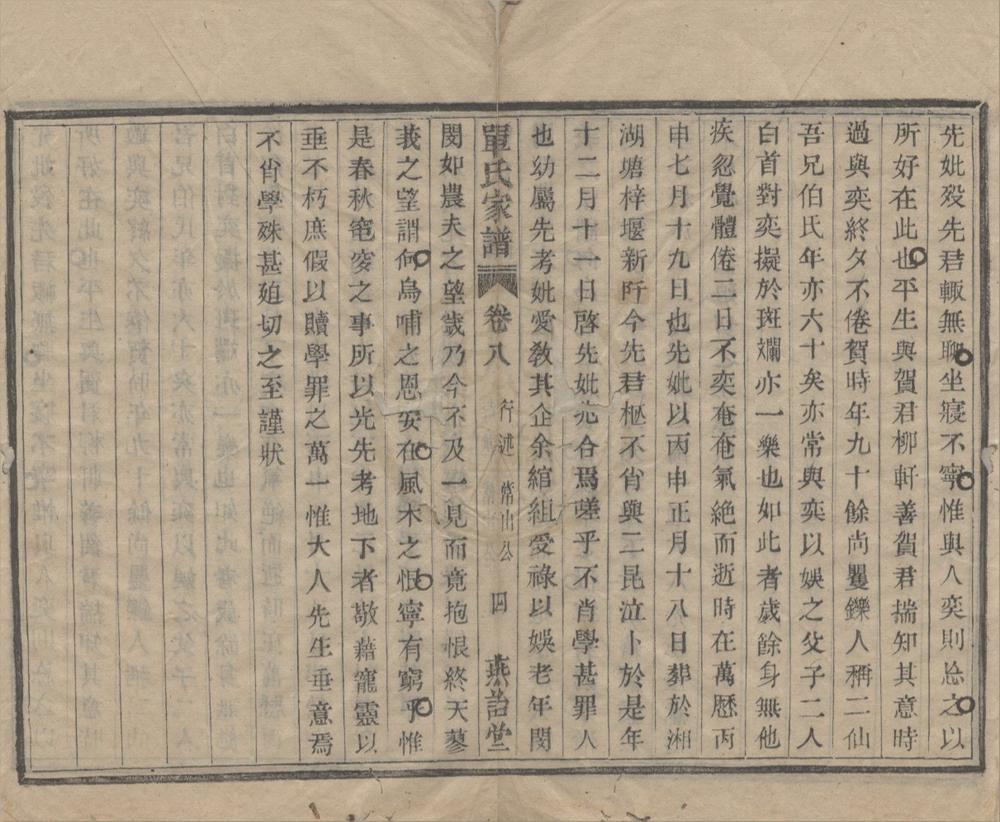 先妣殁先君輙無聊坐寝不寧惟與人奕則忘之以
所好在此也平生與賀君柳軒善賀君揣知其意時
過與奕終夕不倦賀時年九十餘尚矍鑠人稱二仙
吾兄伯氏年亦六十矣亦常與奕以娛之父子二人
白首對奕擬於斑斕亦一樂也如此者歲餘身無他
疾忽覺體倦三日不奕奄奄氣絶而逝時在萬歷丙
申七月十九日也先妣以丙申正月十八日葬於湘
湖塘梓堰新阡今先君柩不肖與二昆泣卜於是年
十二月十一日啓先妣兆合焉嗟乎不肖學甚罪人
也幼屬先考妣愛敎其企余綰組受祿以娛老年閔
單氏家譜 卷八 行述 常山公 四 燕詒堂
閔如農夫之望歲乃今不及一見而竟抱恨終天蓼
莪之望謂何烏哺之恩安在風木之恨寧有窮乎惟
是春秋窀穸之事所以光先考地下者敬藉寵靈以
垂不朽庶假以贖學罪之萬一惟大人先生垂意焉
不肖學殊甚殞切之至謹狀